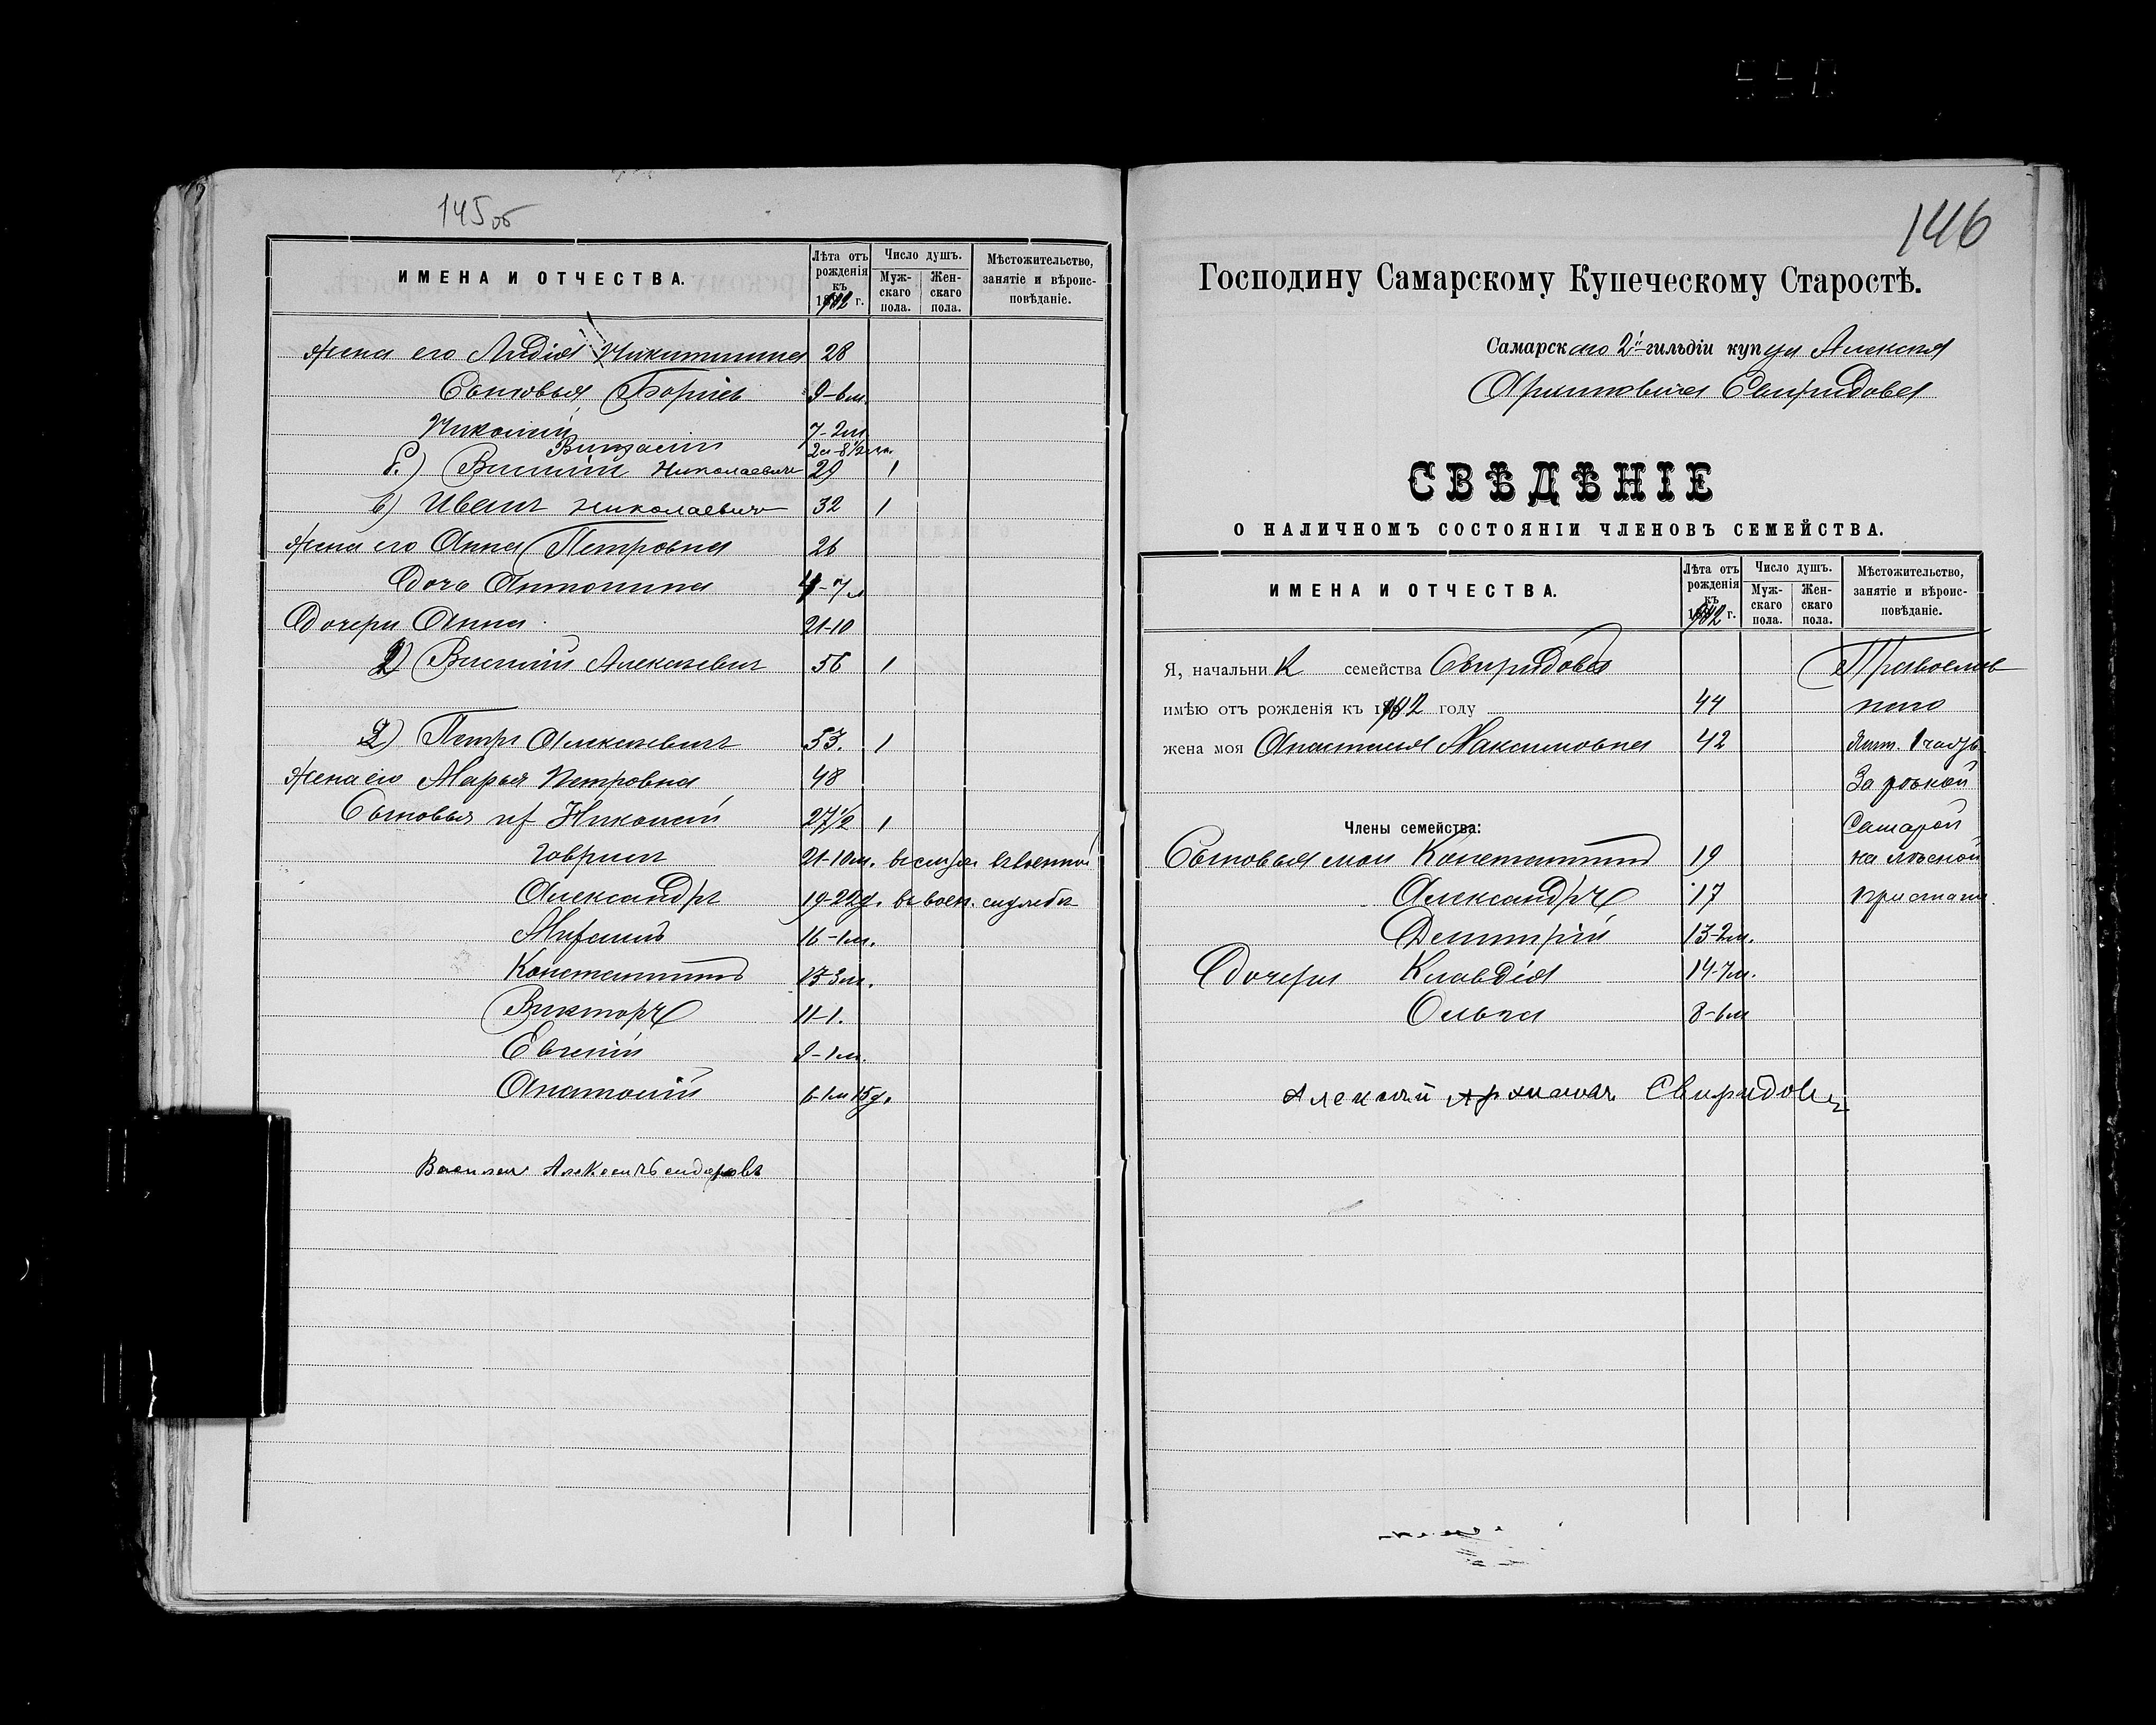 145об
ИМЕНА И ОТЧЕСТВА.
Лѣта отъ рожденія къ 1912 г.
Число душъ.
Мужскаго пола.
Женскаго пола.
Мѣстожительство, занятіе и вѣроисповѣданіе.
Жена его Лидія Никитишна 28
Сыновья Борисъ 9-6м.
Николай 7-2м
Виталій 2г-8 1/2 м.
б.) Василій Николаевичъ 29 1
в) Иванъ Николаевичъ 32 1
Жена его Анна Петровна 26
Дочь Антонина 4-7м
Дочери Анна 21-10
2) Василій Алексѣевичъ 56 1
3) Петръ Алексѣевичъ 53. 1
Жена его Марья Петровна 48
Сыновья их Николай 27 1/2 1
Гавріилъ 21-10м. въ военной
Александръ 19-22д. въ воен. службѣ
Михаилъ 16-1м.
Константинъ 13-3м.
Викторъ 11-1.
Евгеній 9-1м.
Анатолій 6-1м 15д.
Василей
146
Господину Самарскому Купеческому Старостѣ.
Самарскаго 2й гильдіи купца Алексѣя
Свиридова
СВѢДѢНІЕ
О НАЛИЧНОМЪ СОСТОЯНІИ ЧЛЕНОВЪ СЕМЕЙСТВА.
ИМЕНА И ОТЧЕСТВА.
Лѣта отъ рожденія къ 1912 г.
Число душъ.
Мужскаго пола.
Женскаго пола.
Мѣстожительство, занятіе и вѣроисповѣданіе.
Я, начальникъ семейства Свиридовъ Православ
имѣю отъ рожденія къ 1912 году 44 наго
жена моя Анастасія Максимовна 42 Жит. 1 часть
За рѣкой
Члены семейства: Самарой
Сыновья мои Константинъ 19 на лѣсной
Александръ 17 пристани.
Дмитрій 13-2м.
Дочери Клавдія 14-7м.
Ольга 8-6м
Алексѣй Свиридовъ